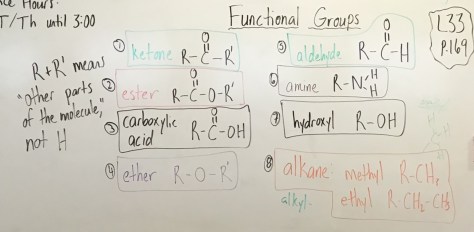 Hours:
T/Th until 3:00
Functional Groups
L33
P.169
R+R' means
"other parts
of the molecule,"
not H
① ketone R-C-R'
O
② ester R-C-O-R'
O
③ carboxylic
acid R-C-OH
O
④ ether R-O-R'
⑤ aldehyde R-C-H
O
⑥ amine R-N H
H
⑦ hydroxyl R-OH
⑧ alkane: methyl R-CH₃
alkyl. ethyl R-CH₂-CH₃